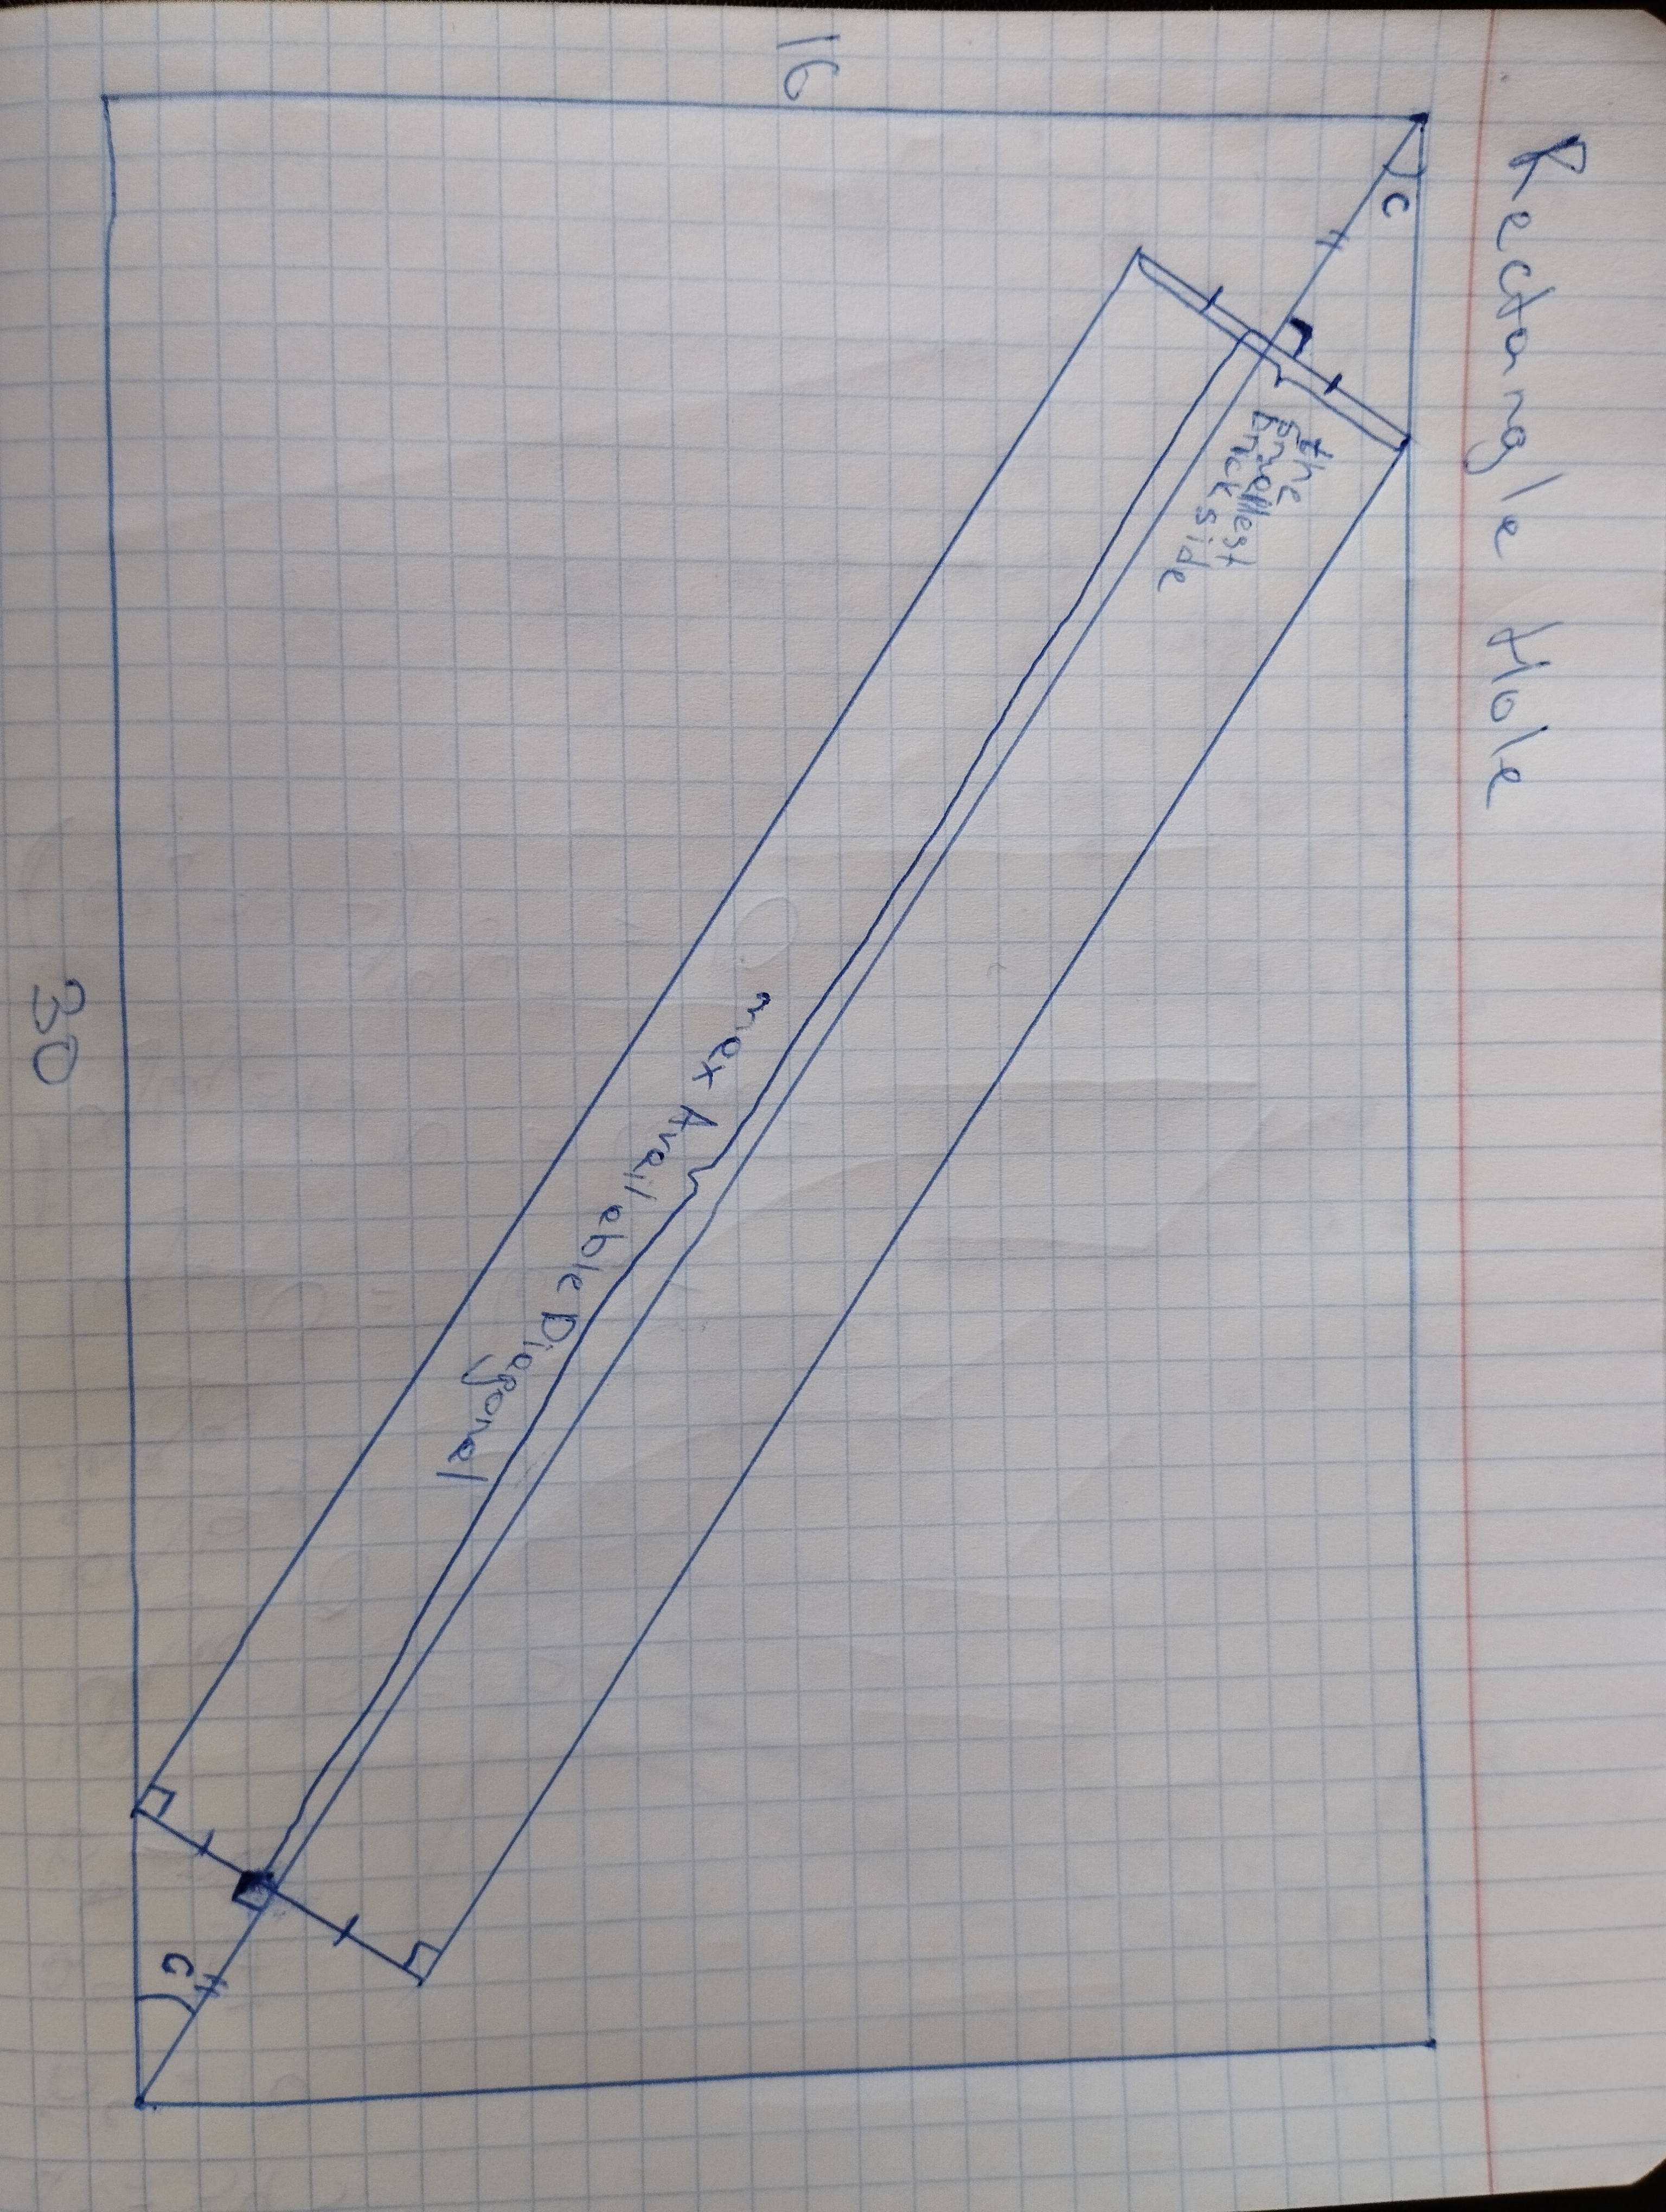 Rectangle Hole
C
the
smallest
brick side
16
max Available Diagonal
C
30